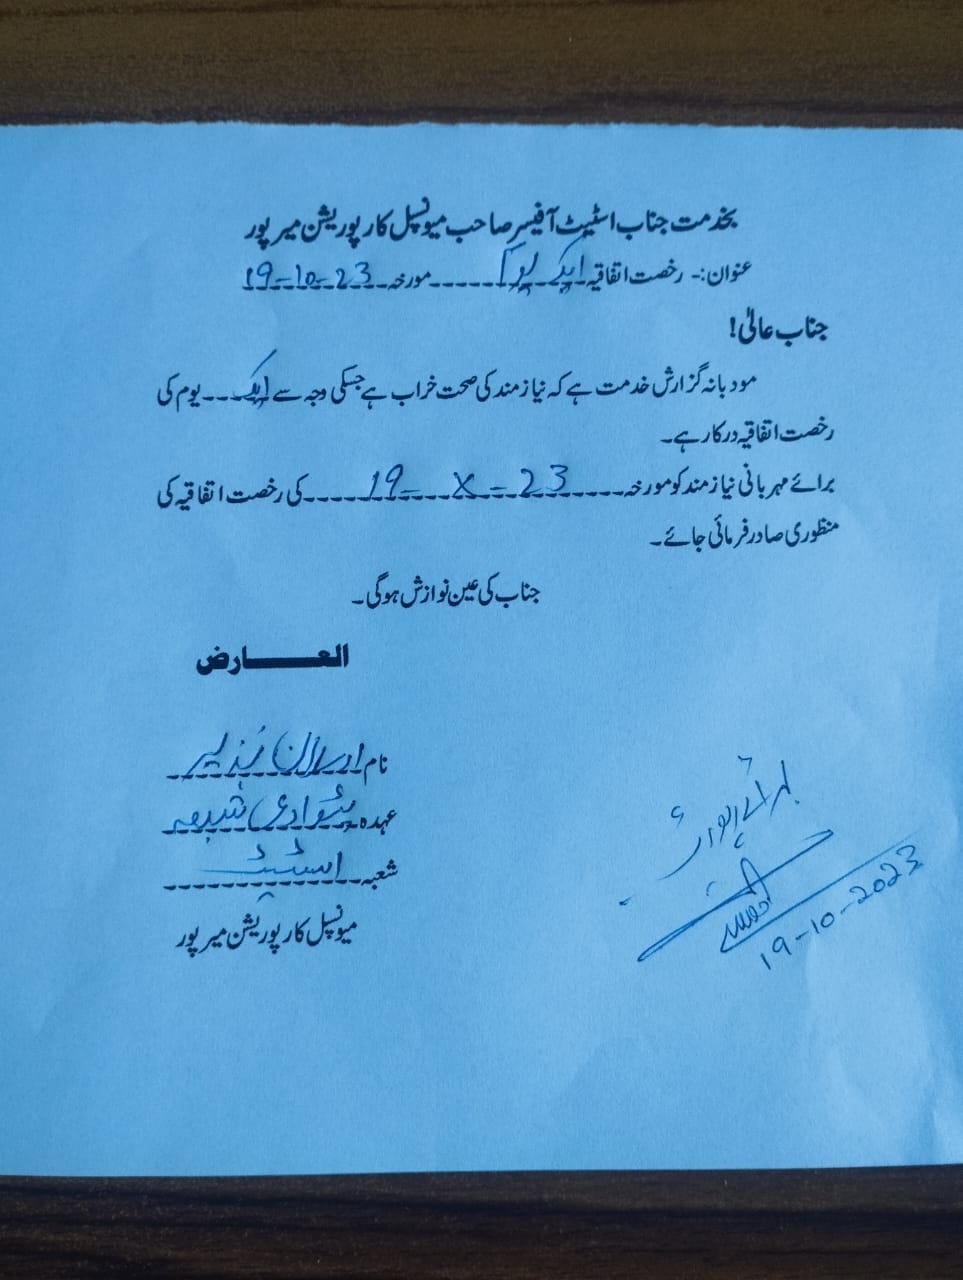 بخدمت جناب اسٹیٹ آفیسر صاحب میونسپل کارپوریشن میرپور
عنوان:- رخصت اتفاقیہ ایک یوم مورخہ 19-10-23
جناب عالیٰ!
مودبانہ گزارش خدمت ہے کہ نیازمند کی صحت خراب ہے جسکی وجہ سے ایک یوم کی
رخصت اتفاقیہ درکار ہے۔
برائے مہربانی نیازمند کو مورخہ 19-X-23 کی رخصت اتفاقیہ کی
منظوری صادر فرمائی جائے۔
جناب کی عین نوازش ہوگی۔
العارض
نام ارسلان نذیر
عہدہ پٹواری شعبہ
شعبہ اسٹیٹ
میونسپل کارپوریشن میرپور
برائے رپورٹ
19-10-2023